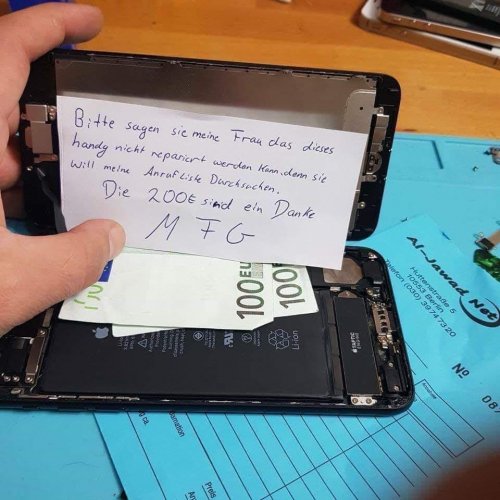 Bitte sagen sie meine Frau das dieses
handy nicht repariert werden kann, denn sie
will meine Anrufliste Durchsuchen.
Die 200€ sind ein Danke
M F G
100 EURO
100
Li-ion
TAPTIC
ENGINE
Al-Jawad Net
Huttenstraße 5
10553 Berlin
Telefon (030) 39 74 73 20
Nº 08
Preis